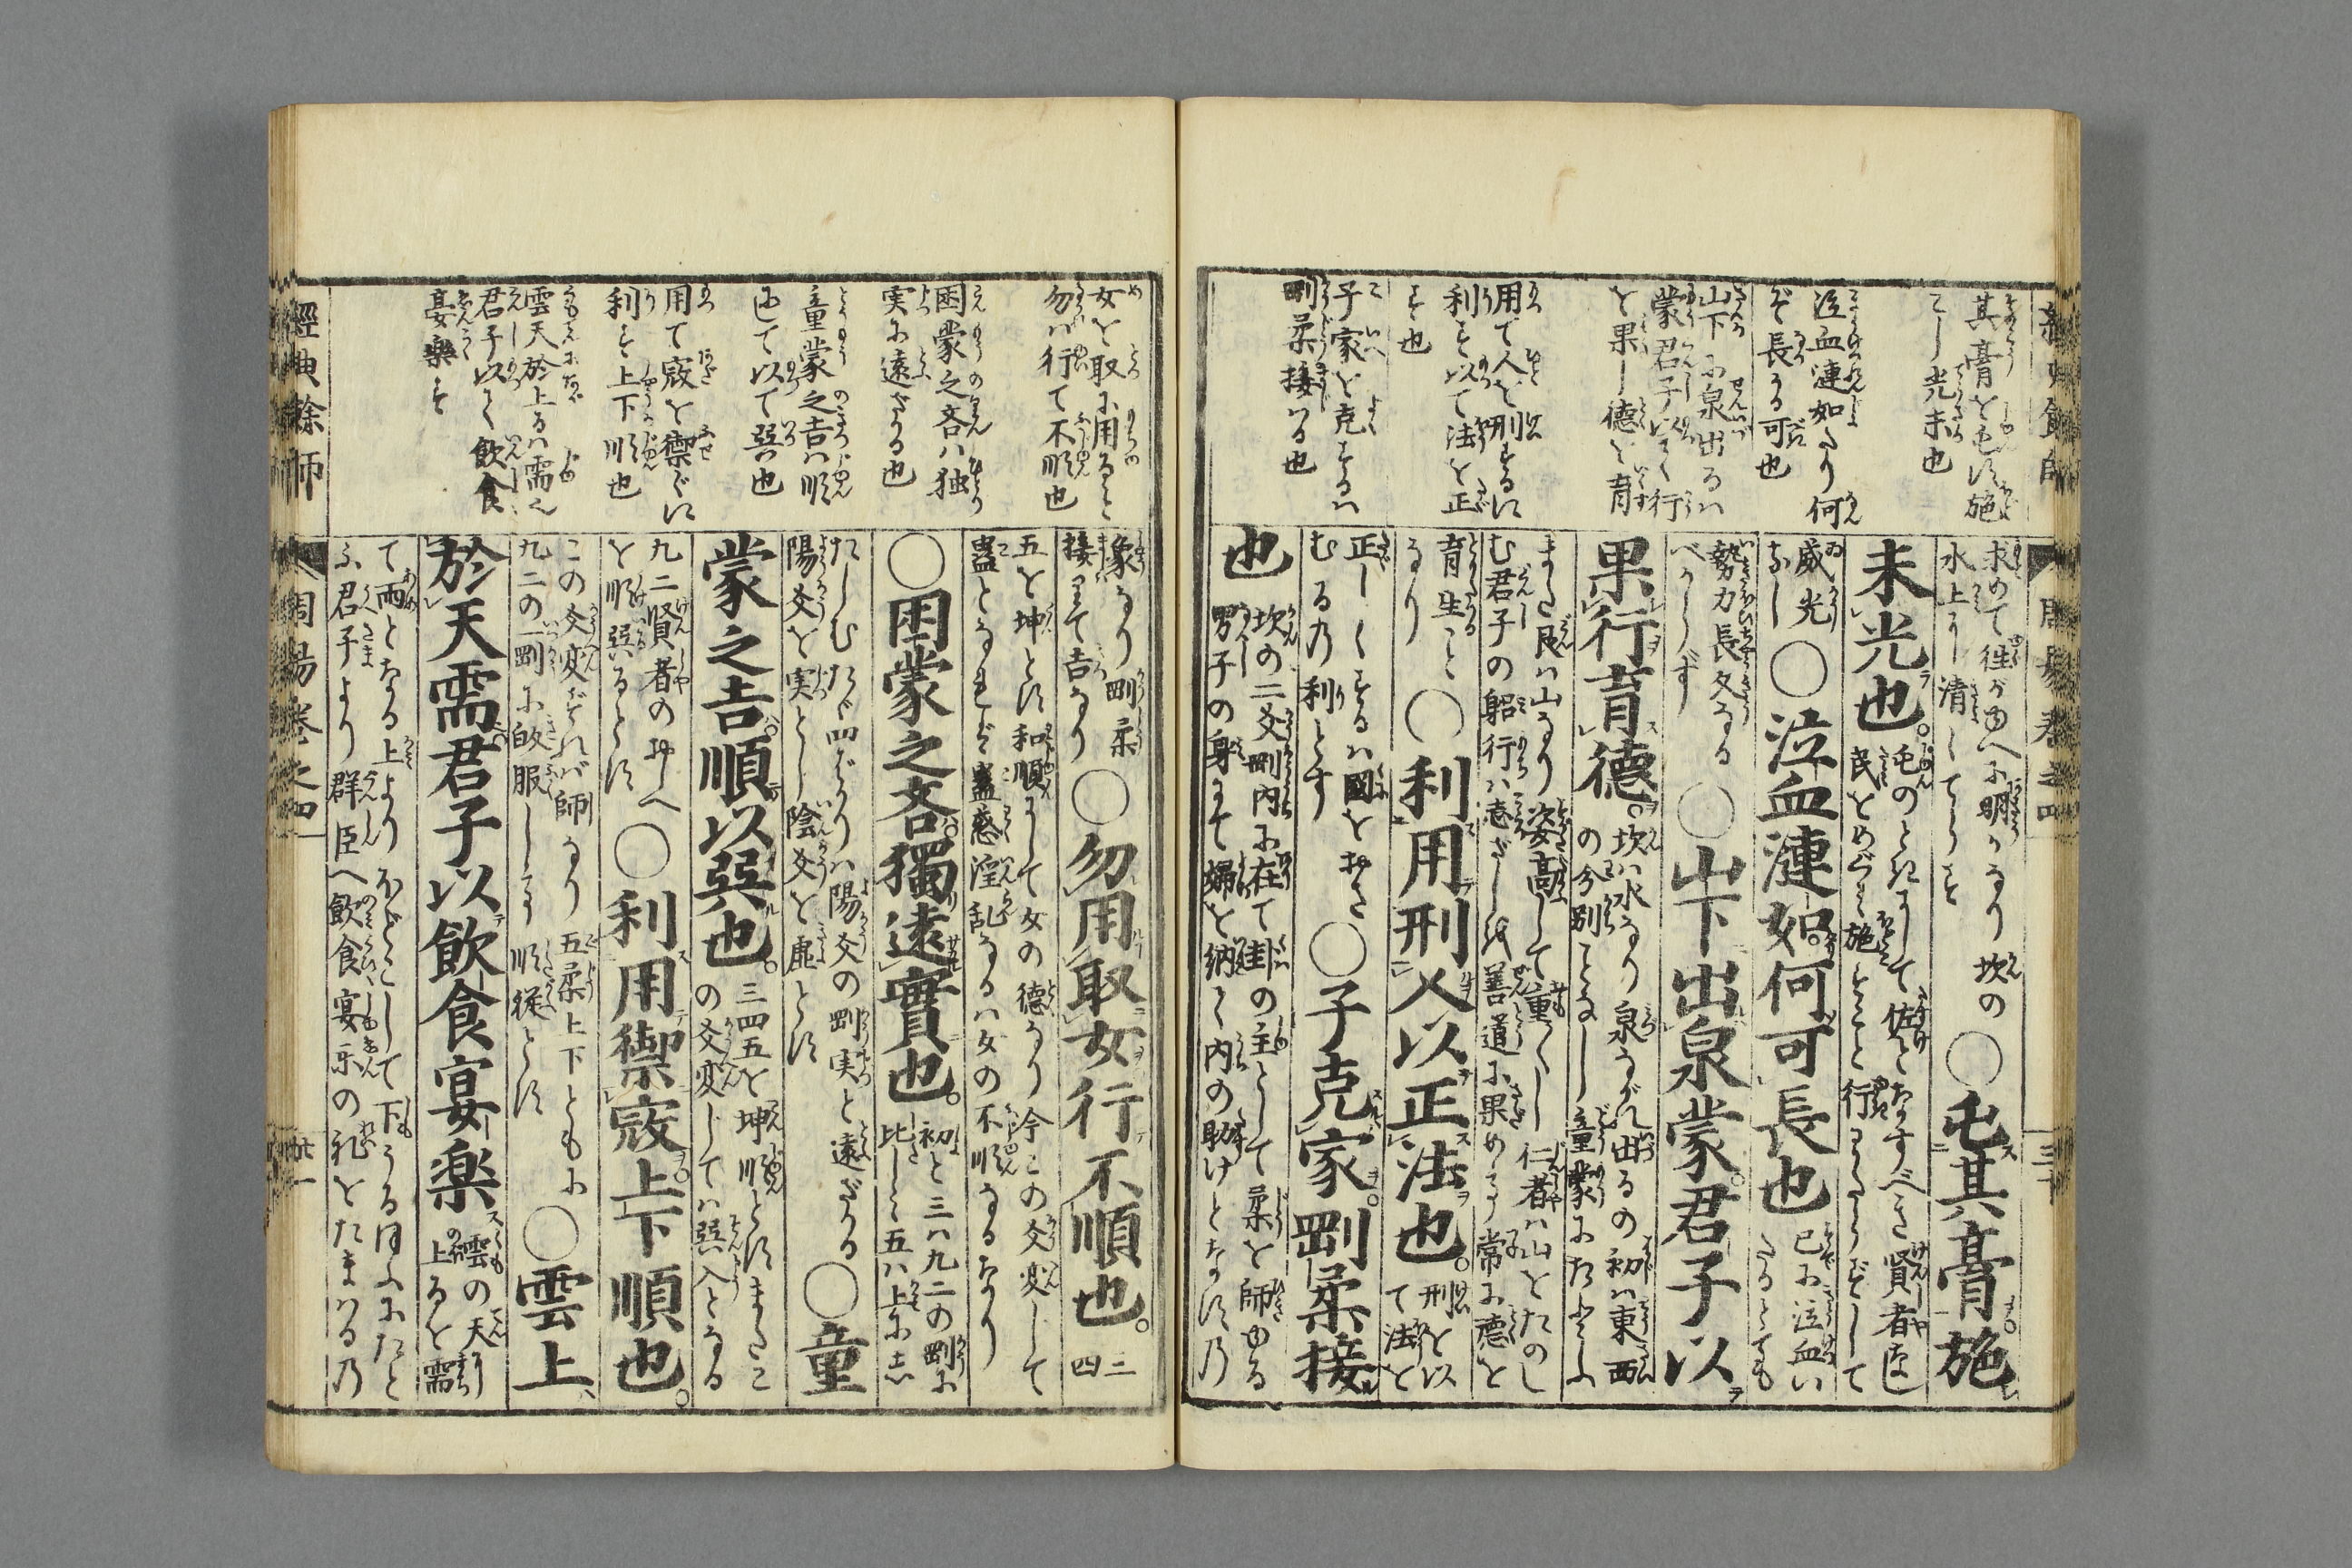 其膏を屯す施
こし光未也
泣血漣如たり何
ぞ長かる可也
山下に泉出るハ
蒙君子以て行
を果し徳を育
用て人を刑するに
利す以て法を正
す也
子家を克するハ
剛柔接ハる也
求めて往がゆへに明かなり坎の
水上にし清してらす
○屯其膏施
未光也。
屯のときにして佐となすべき賢者なし
民をめぐミ施すことを行ハたらずして
威光
なし
○泣血漣如。何可長也
已に泣血い
たるとても
勢力長久なる
べからず
○山下出泉蒙。君子以
果行育德。
坎ハ水なり泉ながれ出るの初ハ東西
の分別ことなし童蒙にたとふ
また艮ハ山なり姿高して重くし仁者ハ山をたのし
む君子の躬行ハ善道に果める常に徳を
育生こと
るり
○利用刑人以正法也。
刑を以
て法を
正しくするハ國をおさ
むる乃利とす
○子克家。剛柔接
也
坎の二爻剛内に在て卦の主として柔を師ゆる
男子の身にて婦を納て内の助けとなす乃
經典餘師
周易卷之四
女を取に用ると
勿行て不順也
困蒙之吝ハ独
実に遠ざかる也
童蒙之吉ハ順
にして以て巽也
用て寇を禦ぐに
利す上下順也
雲天於上るハ需也
君子以て飲食
宴楽す
象なり剛柔
接りて吉なり
○勿用取女行不順也。
三
四
五を坤とす和順にして女の德なり今この爻変じて
蠱となれど蠱惑淫乱なるハ女の不順なるなり
○困蒙之吝。獨遠實也。
初と三ハ九二の剛に
比し五ハ上に
たしむたゞ四ばかりハ陽爻の剛実と遠ざかる
陽爻を実とし陰爻を虚とす
○童
蒙之吉。順以巽也。
三四五を坤順とすまたこ
の爻変じてハ巽入となる
九二賢者のおしへ
を順巽るとす
○利用禦寇。上下順也。
この爻変ずれバ師なり五柔上下ともに
九二の一剛に皈服しるり順従とす
○雲上
於天需。君子以飲食宴楽
雲の天に
上るを需
て雨となる上よりほどこして下うるほふにたと
ふ君子より群臣へ飲食宴樂の礼をたまはる乃
經典餘師
周易卷之四
廿一